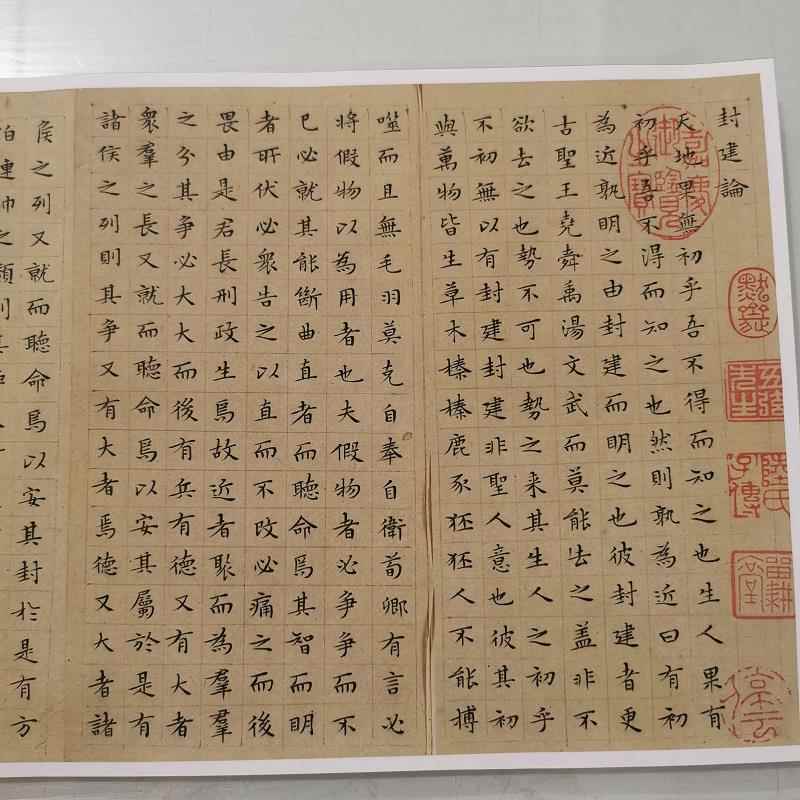 封建論
天地果無初乎吾不得而知之也生人果有
初乎吾不得而知之也然則孰為近曰有初
為近孰明之由封建而明之也彼封建者更
古聖王堯舜禹湯文武而莫能去之蓋非不
欲去之也勢不可也勢之来其生人之初乎
不初無以有封建封建非聖人意也彼其初
與萬物皆生草木榛榛鹿豕狉狉人不能搏
噬而且無毛羽莫克自奉自衛荀卿有言必
将假物以為用者也夫假物者必争争而不
已必就其能斷曲直者而聽命焉其智而明
者所伏必衆告之以直而不改必痛之而後
畏由是君長刑政生焉故近者聚而為羣羣
之分其争必大大而後有兵有德又有大者
衆羣之長又就而聽命焉以安其屬於是有
諸侯之列則其争又有大者焉德又大者諸
侯之列又就而聽命焉以安其封於是有方
伯連帥之類則其
嘉慶御覽之寶
陸氏子傳
留耕堂